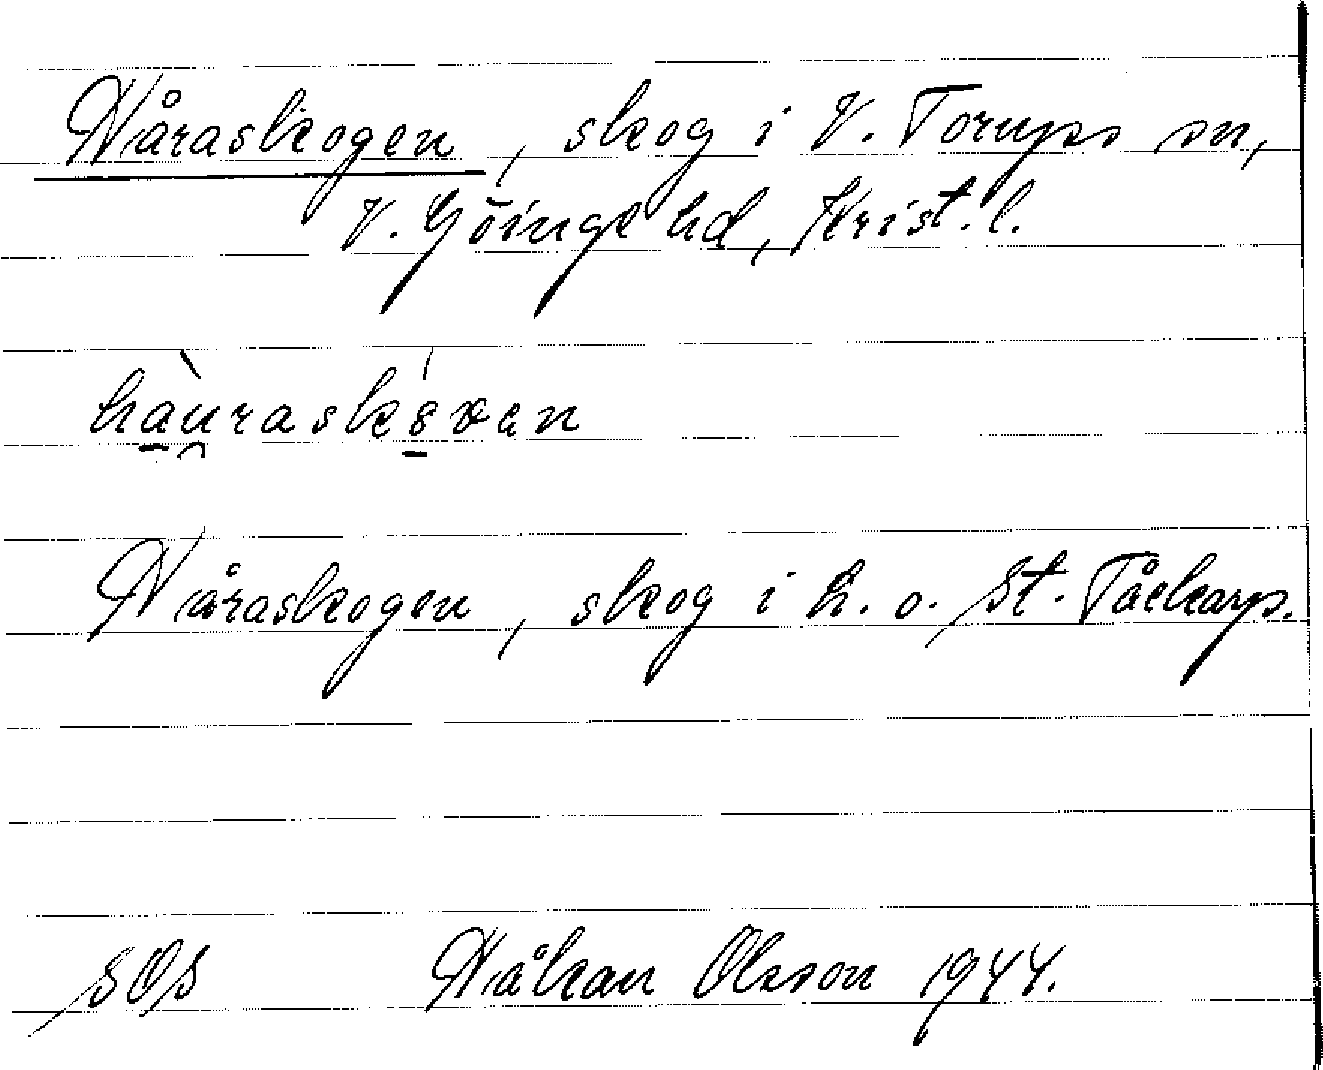 Håraskogen, skog i V. Torups sn,
V. Göinge hd, Krist. l.
Håraskogen, skog i h. o. St. Tåckarp.
SOS Håkan Olsson 1944.